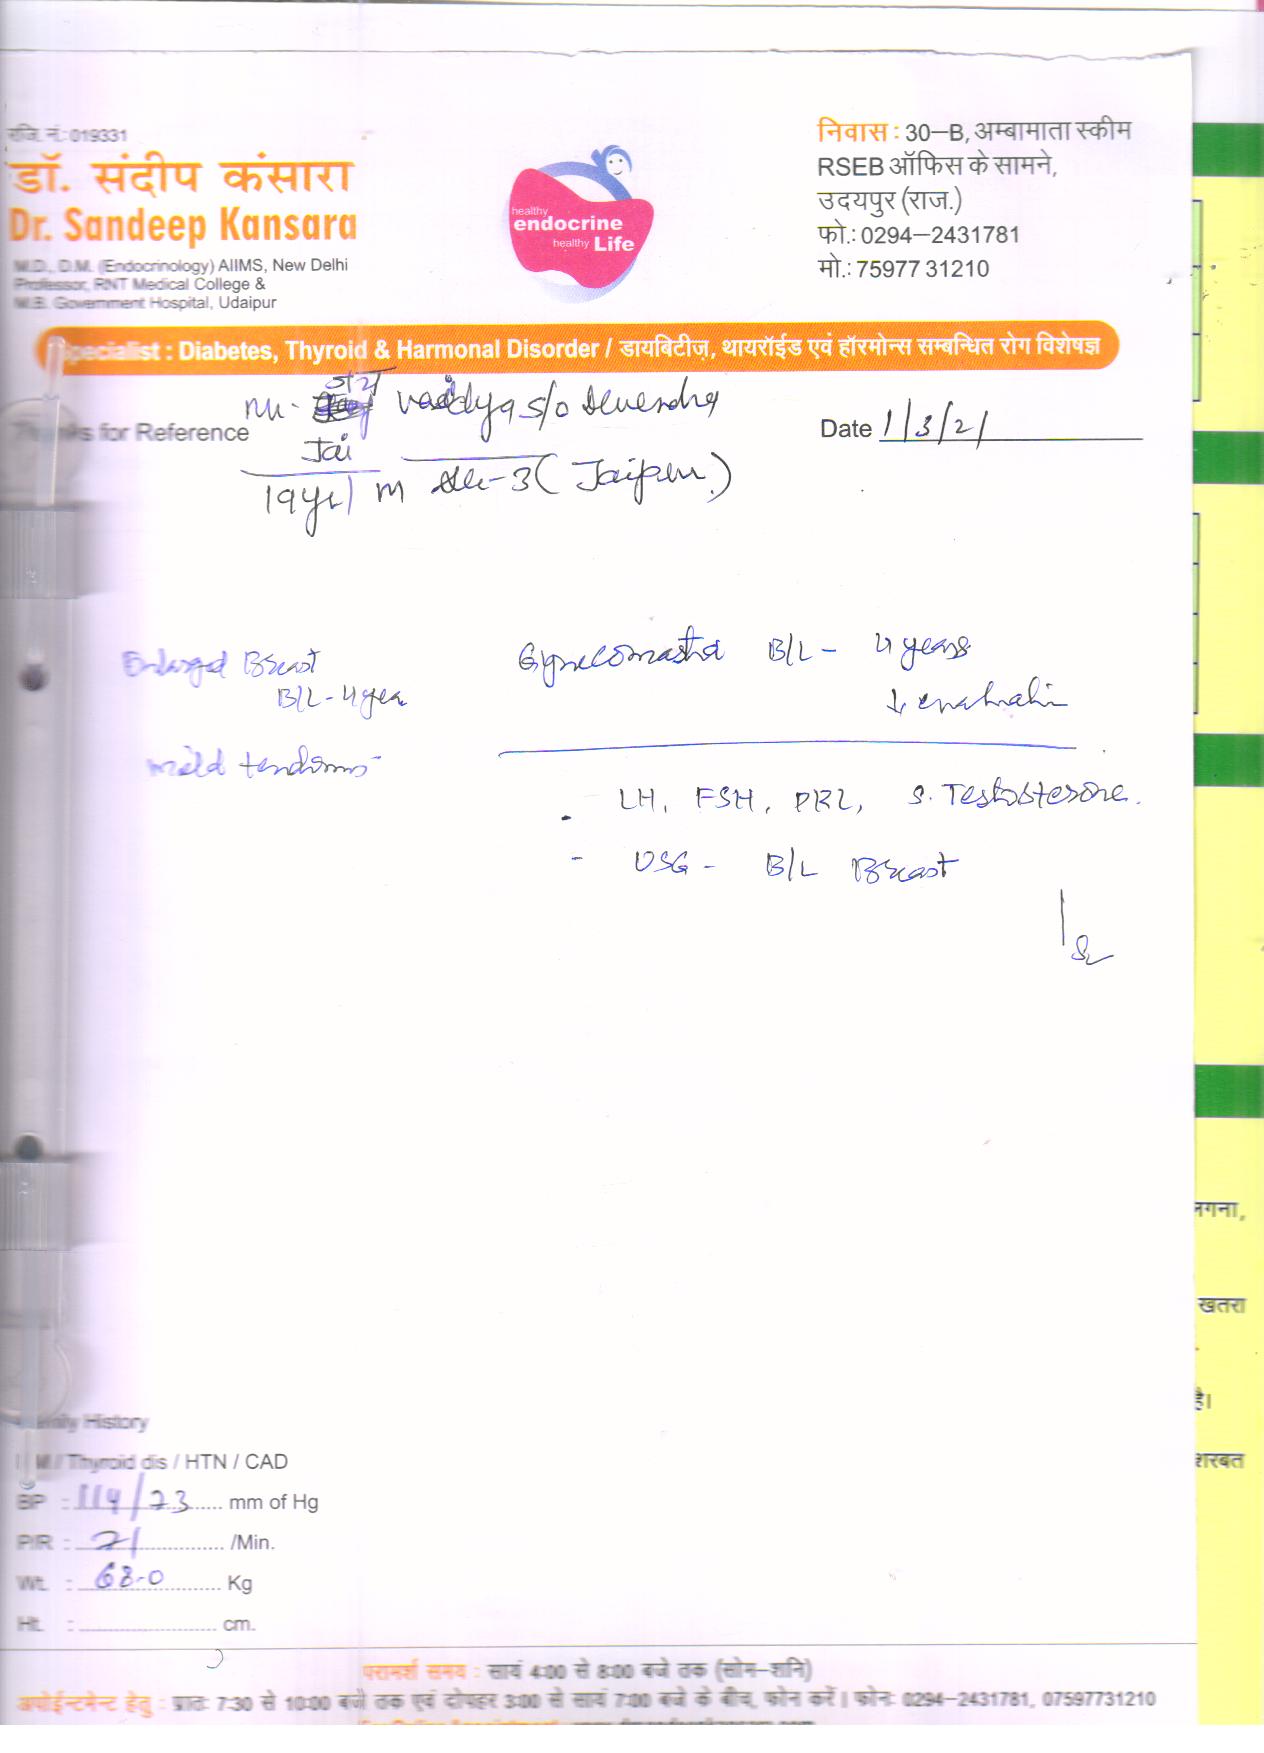 रजि. नं.: 019331
डॉ. संदीप कंसारा
Dr. Sandeep Kansara
M.D., D.M. (Endocrinology) AIIMS, New Delhi
Professor, RNT Medical College &
M.B. Government Hospital, Udaipur
healthy
endocrine
healthy Life
निवास : 30–B, अम्बामाता स्कीम
RSEB ऑफिस के सामने,
उदयपुर (राज.)
फो.: 0294–2431781
मो.: 75977 31210
Specialist : Diabetes, Thyroid & Harmonal Disorder / डायबिटीज़, थायरॉईड एवं हॉरमोन्स सम्बन्धित रोग विशेषज्ञ
जय
vaidya s/o Devendra
for Reference
Jai
Date 1/3/21
19yr/ m (Jaipur)
Enlarged Breast
B/L - 4 year
mild
Gynecomastia B/L - 4 years
LH, FSH, PRL, S. Testosterone.
- USG - B/L Breast
Family History
/ Thyroid dis / HTN / CAD
BP : 114/73 mm of Hg
P/R : 71 /Min.
Wt. : 68.0 Kg
Ht. : cm.
लगना,
खतरा
है।
शरबत
परामर्श समय : सायं 4:00 से 8:00 बजे तक (सोम–शनि)
अपोईन्टमेन्ट हेतु : प्रातः 7:30 से 10:00 बजे तक एवं दोपहर 3:00 से सायं 7:00 बजे के बीच, फोन करें। फोन: 0294–2431781, 07597731210